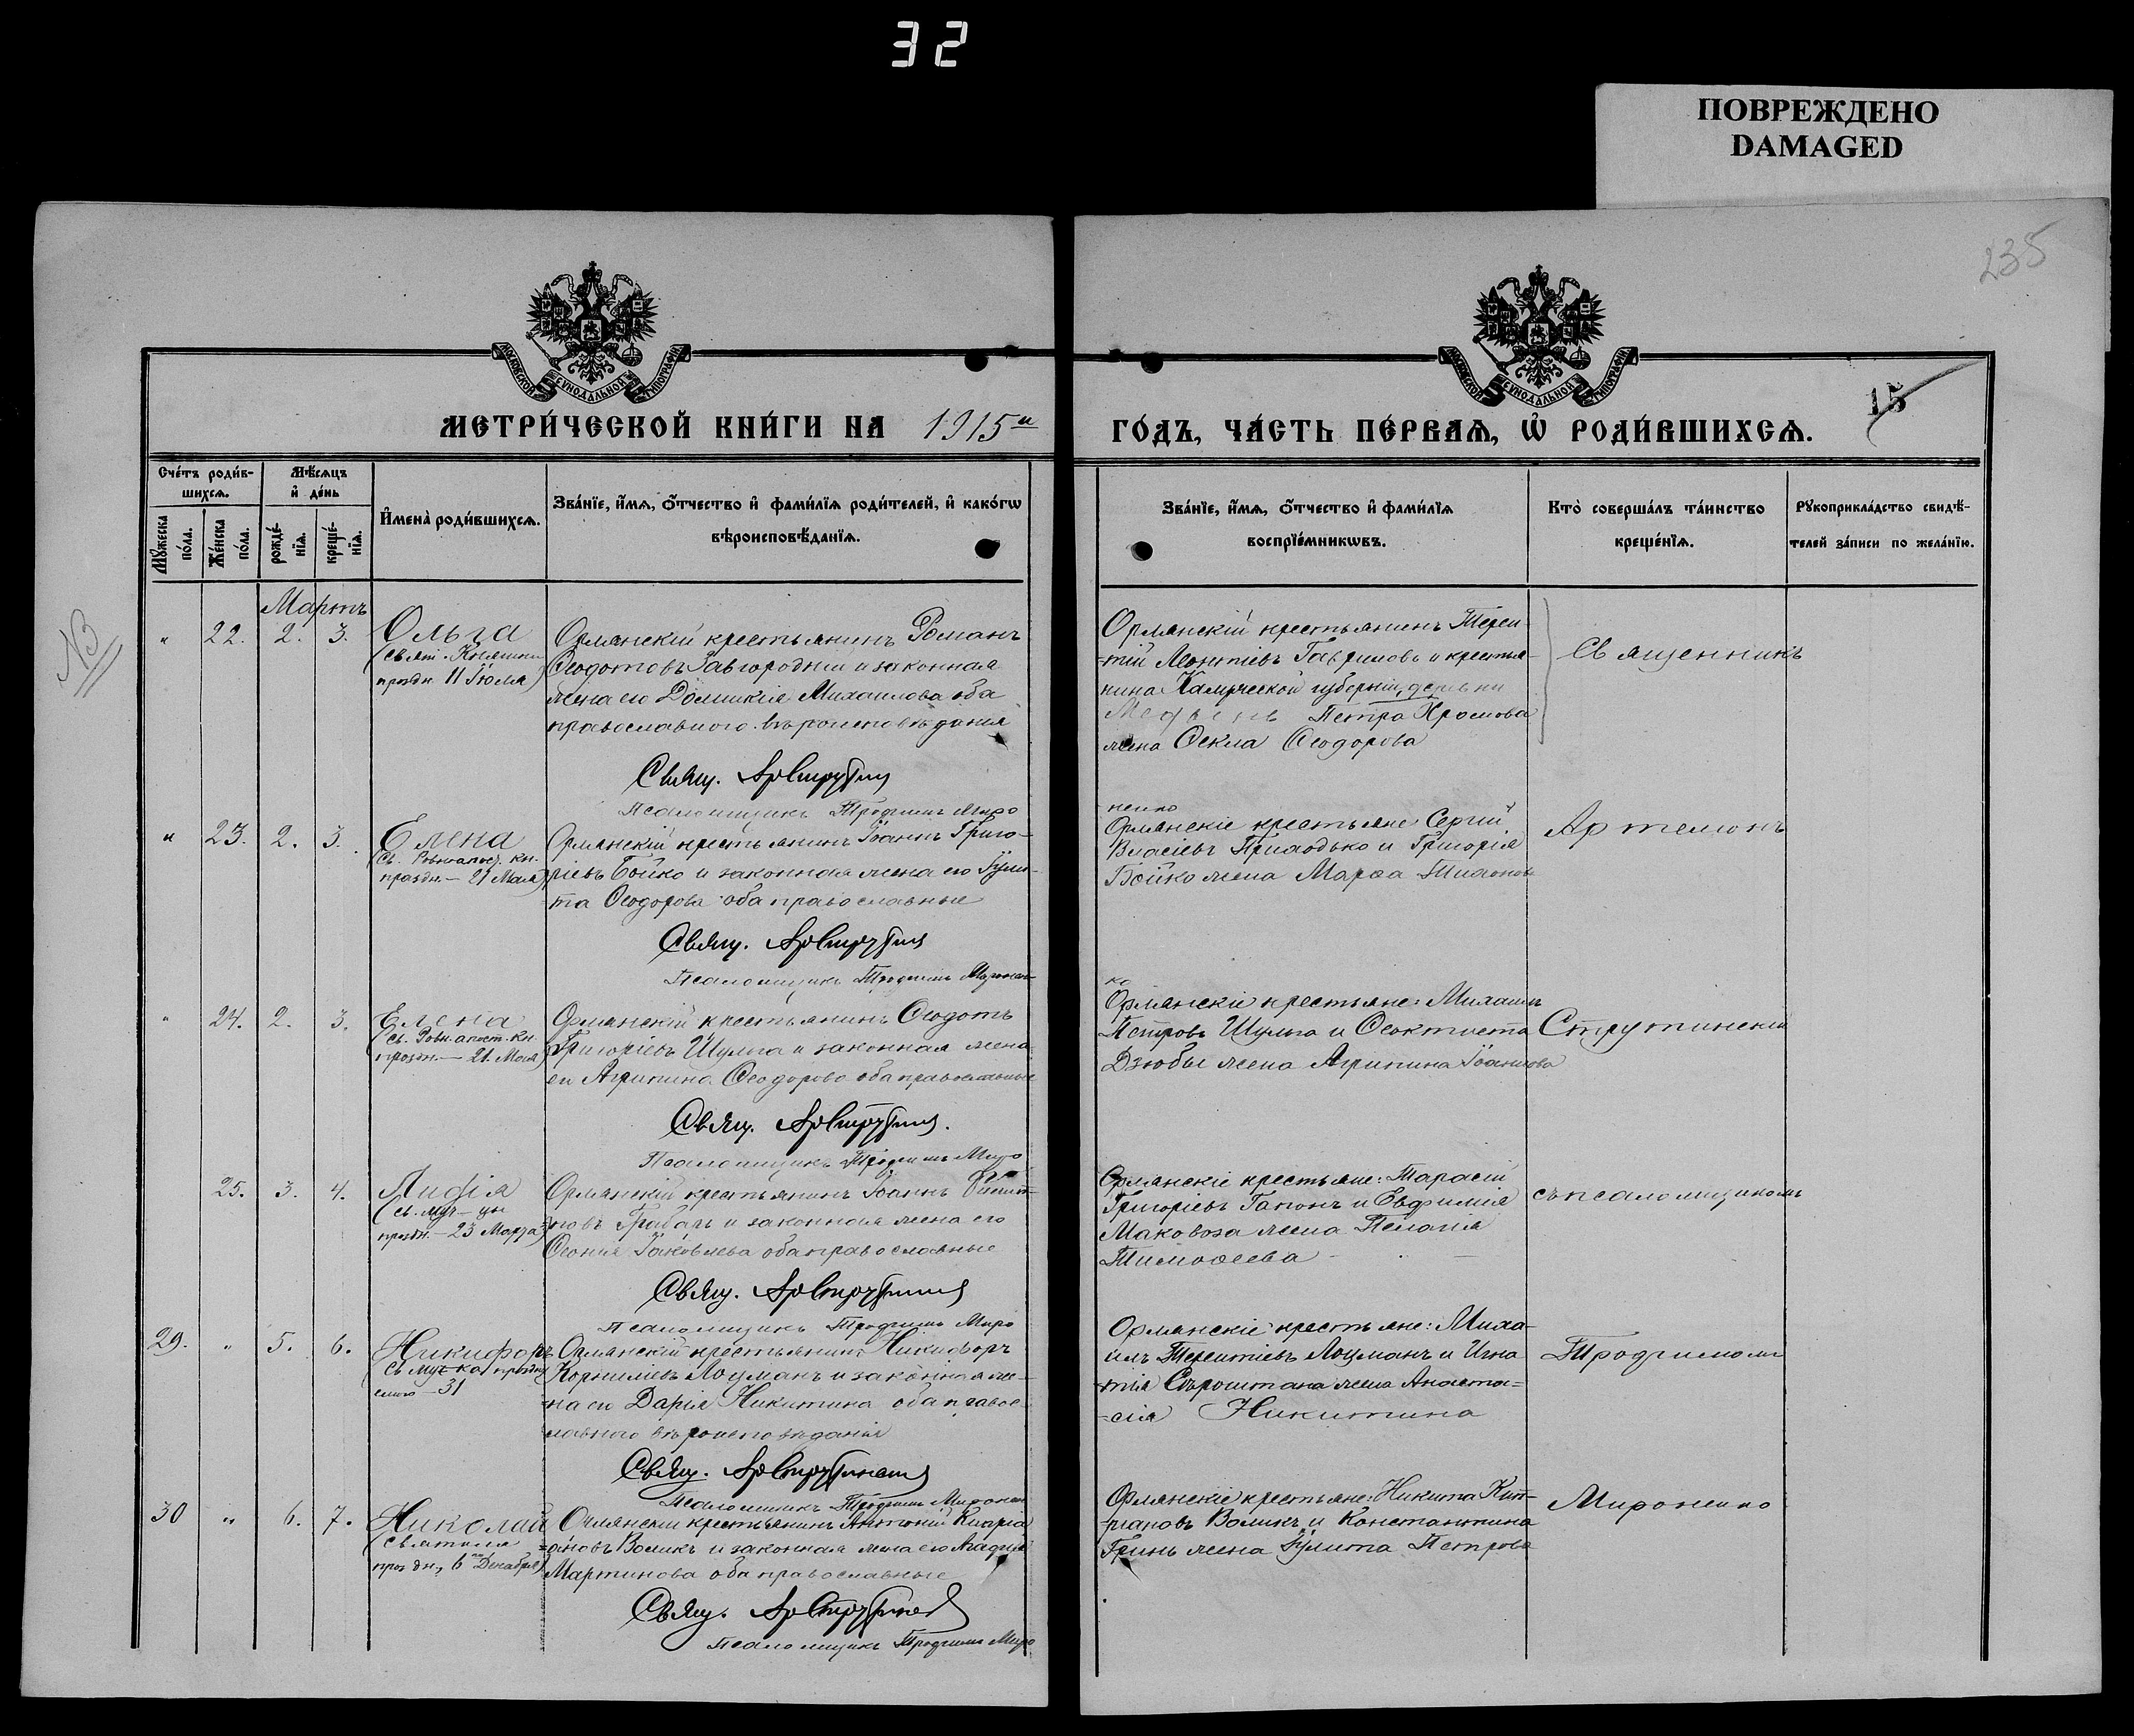 32
ПОВРЕЖДЕНО
DAMAGED
235
МОСКОВСКОЙ СѴНОДАЛЬНОЙ ТИПОГРАФІИ
МОСКОВСКОЙ СѴНОДАЛЬНОЙ ТИПОГРАФІИ
15
МЕТРИ́ЧЕСКОЙ КНИ́ГИ НА 1915й
ГО́ДЪ, ЧА́СТЬ ПЕ́РВАѦ, Ѡ҆ РОДИ́ВШИХСѦ.
Сче́тъ роди́в-
шихсѧ.
Мѣ́сѧцъ
и҆ де́нь
Мꙋ́жеска
по́ла.
Же́нска
по́ла.
рожде́-
нїѧ.
креще́-
нїѧ.
И҆мена̀ роди́вшихсѧ.
Зва́нїе, и҆́мѧ, ѻ҆́тчество и҆ фами́лїѧ роди́телей, и҆ како́гѡ
вѣроисповѣ́данїѧ.
Зва́нїе, и҆́мѧ, ѻ҆́тчество и҆ фами́лїѧ
воспрїе́мникѡвъ.
Кто̀ соверша́лъ та́инство
креще́нїѧ.
Рꙋкоприкла́дство свидѣ́-
телей за́писи по жела́нїю.
NB
Мартъ
" 22. 2. 3. Ольга
праздн. 11 Іюля)
Орлянскій крестьянинъ Романъ
Ѳеодотовъ Завгородній и законная
жена его Домникія Михаилова оба
православнаго вѣроисповѣданія
Свящ. Ар Струтин
Псаломщикъ Трофимъ Миро
ненко
Орлянскій крестьянинъ Терен-
тій Леонтіевъ Гавриловъ и крестья-
нина губерніи, деревни
Петра Хромова
жена Ѳекла Ѳеодорова
Священникъ
" 23. 2. 3. Елена
(Св. Равноапост. кн.
праздн. — 21 Мая)
Орлянскій крестьянинъ Іоаннъ Григо-
ріевъ Бойко и законная жена его Іули-
та Ѳеодорова оба православные
Свящ. Ар Струтин
Псаломщикъ Трофимъ Миронен-
ко
Орлянскіе крестьяне Сергій
Власіевъ Приходько и Григорія
Бойко жена Марѳа Тихонов
Артемонъ
" 24. 2. 3. Елена
(Св. Равн. апост. кн.
праздн. — 21 Мая)
Орлянскій крестьянинъ Ѳеодотъ
Григоріевъ Шульга и законная жена
его Агрипина Ѳеодорова оба православные
Свящ. Ар Струтин.
Псаломщикъ Трофимъ Миро
Орлянскіе крестьяне: Михаилъ
Петровъ Шульга и Ѳеоктиста
Дзюбы жена Агрипина Іоаннова
Струтинскій
25. 3. 4. Лидія
(св. муч-цы
праздн. — 23 Марта)
Орлянскій крестьянинъ Іоаннъ
новъ Грабарь и законная жена его
Ѳеонія Іаковлева оба православные
Свящ. Ар Струтин
Псаломщикъ Трофимъ Миро
Орлянскіе крестьяне: Тарасій
Григоріевъ Гапонъ и Евфимія
Маковоза жена Пелагія
Тимоѳеева
съ псаломщикомъ
29. " 5. 6. Никифоръ
31
Орлянскій крестьянинъ Никифоръ
Корниліевъ Лоцманъ и законная же-
на его Дарія Никитина оба правос-
лавнаго вѣроисповѣданія
Свящ. Ар Струтински
Псаломщикъ Трофимъ Миронен
Орлянскіе крестьяне: Миха-
илъ Терентіевъ Лоцманъ и Игна-
тія жена Анаста=
=сія Никитина
Трофимомъ
30 " 6. 7. Николай
(Святителя
праздн. 6 Декабря)
Орлянскій крестьянинъ Антоній Кипрі
ановъ Воликъ и законная жена его Агафія
Мартинова оба православные
Свящ. Ар Струтин
Псаломщикъ Трофимъ Миро
Орлянскіе крестьяне: Никита Кип-
ріановъ Воликъ и Константина
Гринь жена Іулита Петрова
Мироненко